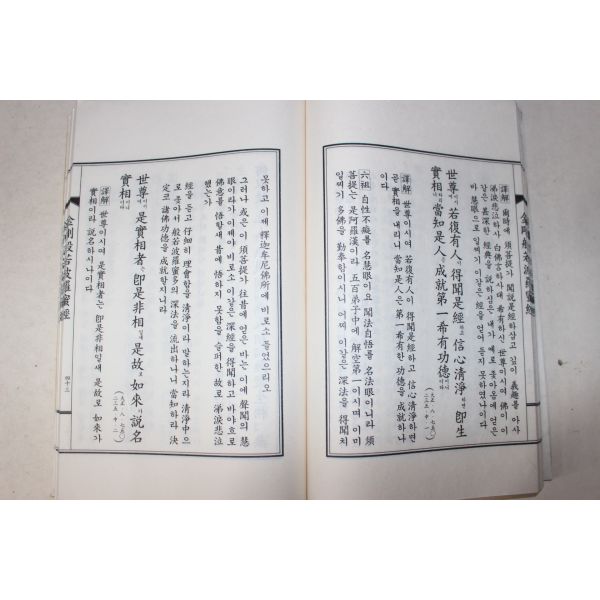 金剛般若波羅蜜經
詳解 爾時에 須菩提가 聞說是經하삽고 깊이 義趣를 아사
涕淚悲泣하사 白佛言하사대 希有하신 世尊이시여 佛이 이
같은 甚深한 經典을 說하심은 내가 예로 좇아옴에 얻은
바 慧眼으로 일찌기 이같은 經을 얻어 듣지 못하였나이다
世尊이시여 若復有人이 得聞是經하고 信心清淨하면 即生
實相하리니 當知是人은 成就第一希有功德이니이다
詳解 世尊이시여 若復有人이 得聞是經하고 信心清淨하면
곧 實相을 내리니 當知是人은 第一希有한 功德을 成就하나
이다
六祖 自性不癡를 名慧眼이요 聞法自悟를 名法眼이니라 須
菩提는 是阿羅漢이라 五百弟子中에 解空第一이시며 이미
일찌기 多佛을 勤奉함이시니 어찌 이같은 深法을 得聞치
못하고 이제 釋迦牟尼佛所에 비로소 들었으리오
그러나 或은 이 須菩提가 往昔에 얻은 바는 이에 聲聞의 慧
眼이라가 이제야 비로소 이같은 深經을 得聞하고 바야흐로
佛意를 悟할새 昔에 悟하지 못함을 슬퍼한 故로 涕淚悲泣
했는가
經을 듣고 仔細히 理會함을 清淨이라 말하는지라 清淨中으
로 좇아서 般若波羅蜜多의 深法을 流出하나니 當知하라 決
定코 諸佛功德을 成就할지니라
世尊이시여 是實相者는 即是非相일새 是故로 如來가 說名
實相이니이다
詳解 世尊이시여 是實相者는 即是非相일새 是故로 如來가
實相이라 說名하시나이다
金剛般若波羅蜜經
四十三